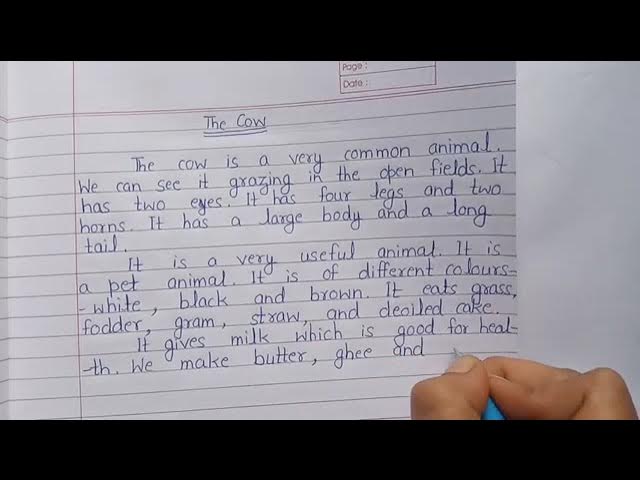 Page :
Date :
The Cow
The cow is a very common animal.
We can see it grazing in the open fields. It
has two eyes. It has four legs and two
horns. It has a large body and a long
tail.
It is a very useful animal. It is
a pet animal. It is of different colours-
-white, black and brown. It eats grass,
fodder, gram, straw, and deoiled cake.
It gives milk which is good for heal-
-th. We make butter, ghee and